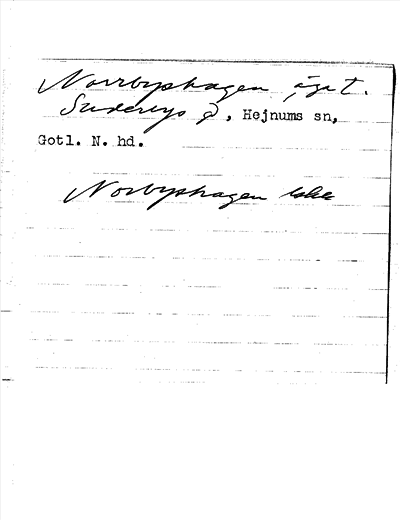 Norrbyshagen, ägot.
Suderbys g, Hejnums sn,
Gotl. N. hd.
Norbyshagen